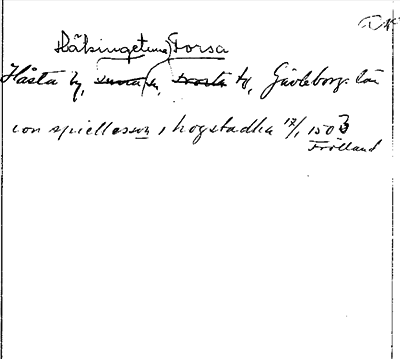 Hälsingetuna, Forsa
Hästa by, tg, Gävleborgs län
ion spiellesson i hogstadha 17/1 1503
Frölland